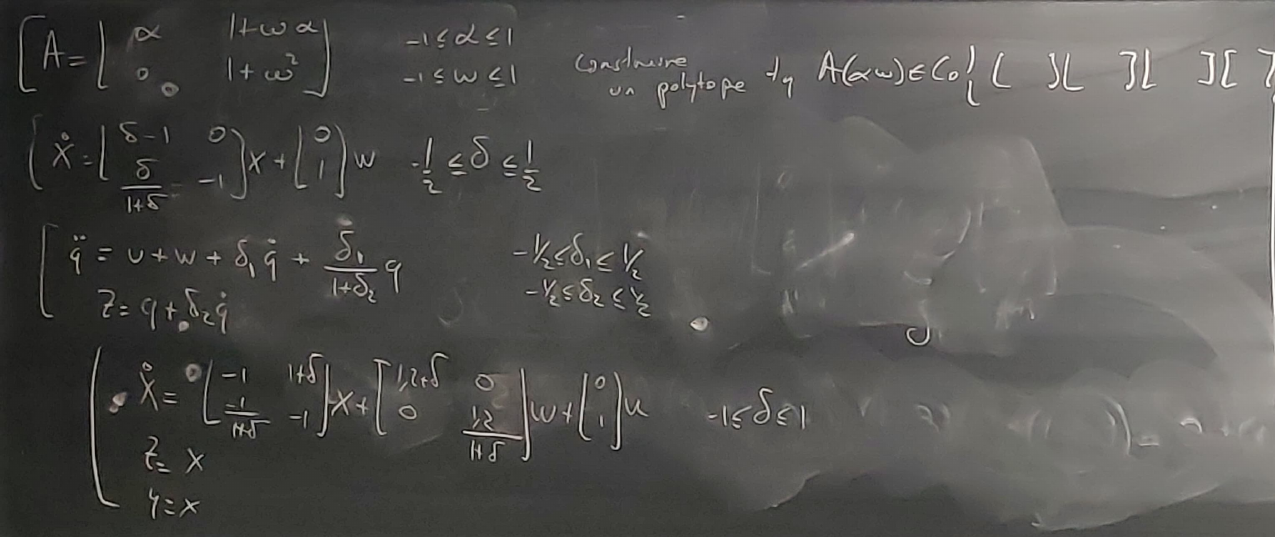 A = [ α 1+ωα ; 0 1+ω² ] -1 ≤ α ≤ 1 -1 ≤ ω ≤ 1 construire un polytope tq A(α,ω) ∈ Co{ [ ][ ][ ][ ]
Ẋ = [ δ-1 0 ; δ/(1+δ) -1 ] X + [ 0 ; 1 ] w -1/2 ≤ δ ≤ 1/2
q̈ = u + w + δ₁ q̇ + δ₁/(1+δ₂) q -1/2 ≤ δ₁ ≤ 1/2
Z = q + δ₂ q̇ -1/2 ≤ δ₂ ≤ 1/2
Ẋ = [ -1 1+δ ; -1/(1+δ) -1 ] X + [ 1,2+δ 0 ; 0 1,2/(1+δ) ] w + [ 0 ; 1 ] u -1 ≤ δ ≤ 1
Z = x
y = x